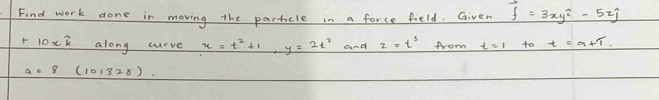 Find work done in moving the particle in a force field. Given f⃗ = 3xyî - 5zĵ
+ 10x k̂ along curve x = t²+1, y = 2t² and z = t³ from t=1 to t = a+π.
a = 8 (101328).